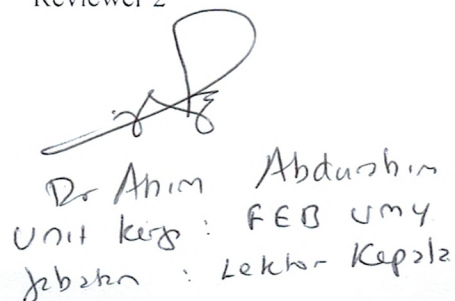 Reviewer 2
Dr Ahim Abdurahim
Unit kerja : FEB UMY
Jabatan : Lektor Kepala